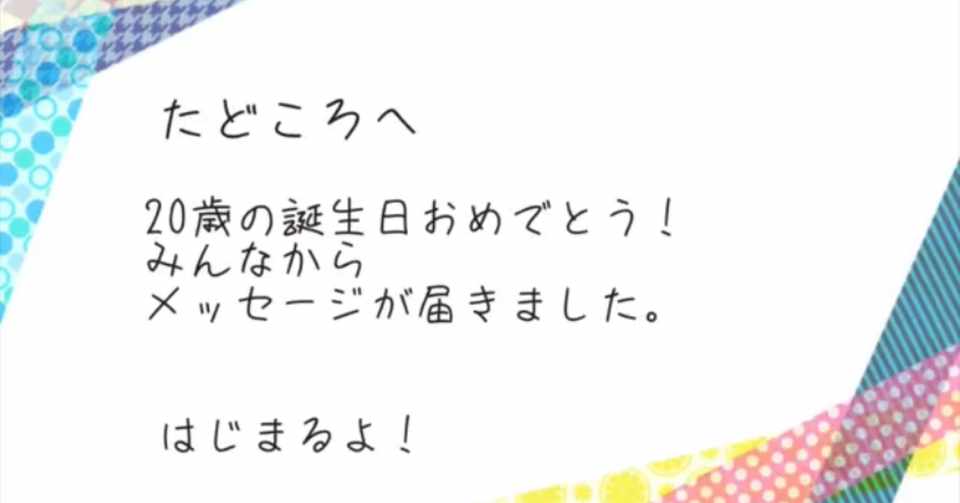 たどころへ
20歳の誕生日おめでとう！
みんなから
メッセージが届きました。
はじまるよ！